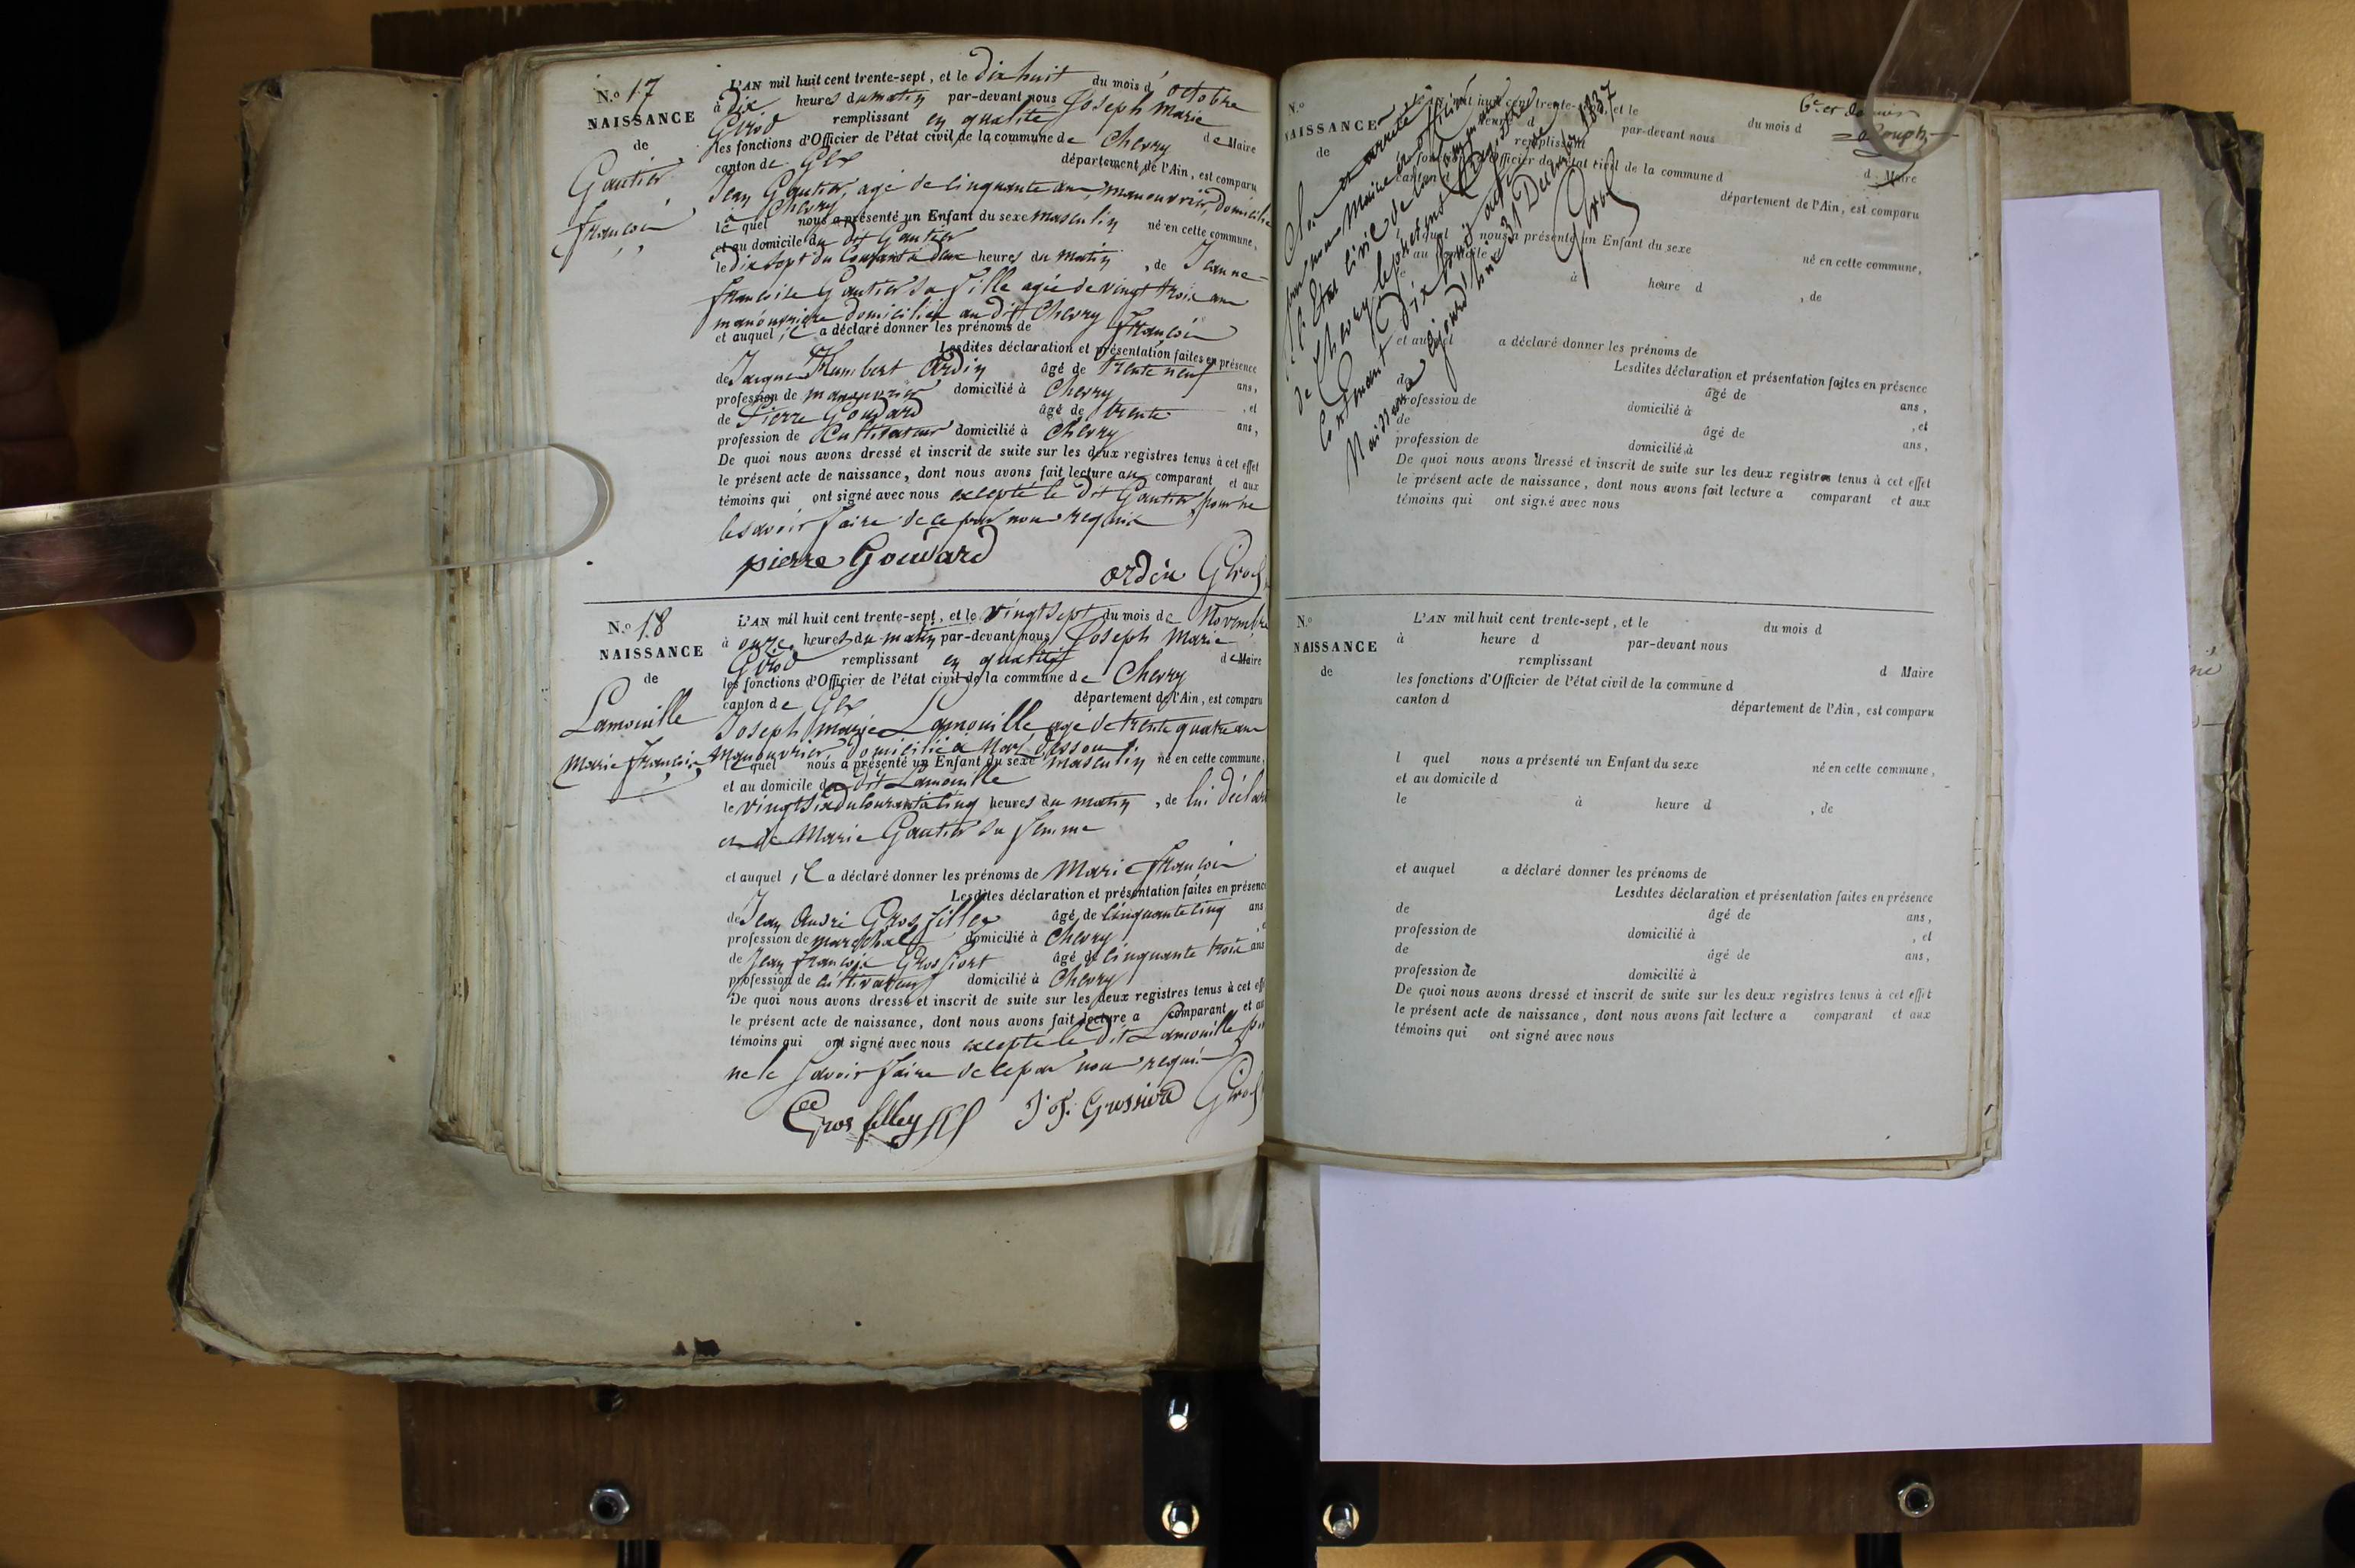 N.º 17
NAISSANCE
de
Gautier
françois
L'AN mil huit cent trente-sept, et le dix huit du mois d'octobre
à dix heures du matin par-devant nous Joseph Marie
Girod remplissant en qualité de Maire
les fonctions d'Officier de l'état civil de la commune de Chevry
canton de Gex département de l'Ain, est comparu
Jean Gautier, agé de cinquante ans, manouvrier, domicilié
à Chevry
le quel nous a présenté un Enfant du sexe masculin né en cette commune,
et au domicile du dit Gautier
le dix sept du Courant à deux heures du matin, de Jeanne
françoise Gautier sa fille agée de vingt trois ans
manouvriere domiciliée au dit Chevry
et auquel il a déclaré donner les prénoms de françois
Lesdites déclaration et présentation faites en présence
de Jacques Humbert Ordin âgé de trente neuf ans,
profession de manouvrier domicilié à Chevry , et
de Pierre Gouvard âgé de trente ans,
profession de Cultivateur domicilié à Chevry
De quoi nous avons dressé et inscrit de suite sur les deux registres tenus à cet effet
le présent acte de naissance, dont nous avons fait lecture au comparant et aux
témoins qui ont signé avec nous excepté le dit Gautier pour ne
le savoir faire de ce par nous requis
pierre Gouvard
ordin Girod
N.º 18
NAISSANCE
de
Lamouille
Marie françois
L'AN mil huit cent trente-sept, et le vingt sept du mois de Novembre
à onze heures du matin par-devant nous Joseph Marie
Girod remplissant en qualité de Maire
les fonctions d'Officier de l'état civil de la commune de Chevry
canton de Gex département de l'Ain, est comparu
Joseph marie Lamouille agé de trente quatre ans
manouvrier domicilié à
le quel nous a présenté un Enfant du sexe masculin né en cette commune,
et au domicile du dit Lamouille
le vingt six du Courant à cinq heures du matin, de lui déclarant
et de Marie Gautier sa femme
et auquel il a déclaré donner les prénoms de Marie françois
Lesdites déclaration et présentation faites en présence
de Jean André Grosfilley âgé de cinquante cinq ans
profession de marechal domicilié à Chevry
de Jean françois Grossiort âgé de cinquante trois ans
profession de cultivateur domicilié à Chevry
De quoi nous avons dressé et inscrit de suite sur les deux registres tenus à cet eff
le présent acte de naissance, dont nous avons fait lecture a comparant et au
témoins qui ont signé avec nous excepté le dit Lamouille
ne le savoir faire de ce par nous requis
Grosfilley J. F. Grossiord Girod
6e et dernier
N.º
NAISSANCE
de
L'AN mil huit cent trente- , et le du mois d
heure d par-devant nous
remplissant d Maire
Officier de l'état civil de la commune d
canton d département de l'Ain, est comparu
quel nous a présenté un Enfant du sexe né en cette commune,
au domicile
à heure d , de
et auquel a déclaré donner les prénoms de
Lesdites déclaration et présentation faites en présence
de âgé de ans,
profession de domicilié à , et
de âgé de ans,
profession de domicilié à
De quoi nous avons dressé et inscrit de suite sur les deux registres tenus à cet effet
le présent acte de naissance, dont nous avons fait lecture a comparant et aux
témoins qui ont signé avec nous
Clos et arrêté
par nous Maire et officier
de l'Etat Civil de la Commune
de Chevry le présent Registre
Contenant dix huit actes de
Naissance aujourd'hui 31 Decembre 1837
Girod
N.º
NAISSANCE
de
L'AN mil huit cent trente-sept, et le du mois d
à heure d par-devant nous
remplissant d Maire
les fonctions d'Officier de l'état civil de la commune d
canton d département de l'Ain, est comparu
l quel nous a présenté un Enfant du sexe né en cette commune,
et au domicile d
le à heure d , de
et auquel a déclaré donner les prénoms de
Lesdites déclaration et présentation faites en présence
de âgé de ans,
profession de domicilié à , et
de âgé de ans,
profession de domicilié à
De quoi nous avons dressé et inscrit de suite sur les deux registres tenus à cet effet
le présent acte de naissance, dont nous avons fait lecture a comparant et aux
témoins qui ont signé avec nous